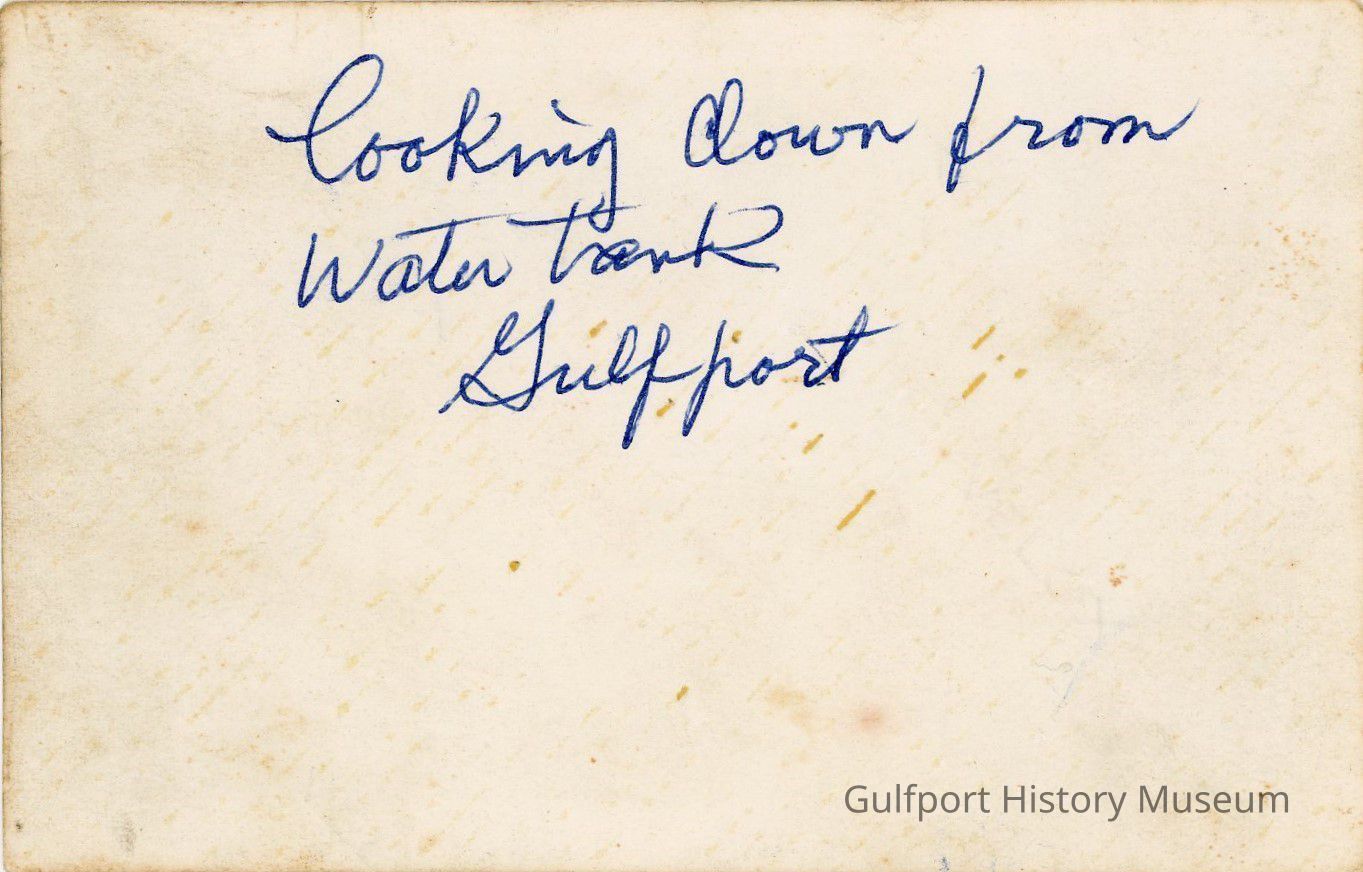 Looking down from
Water tank
Gulfport
Gulfport History Museum